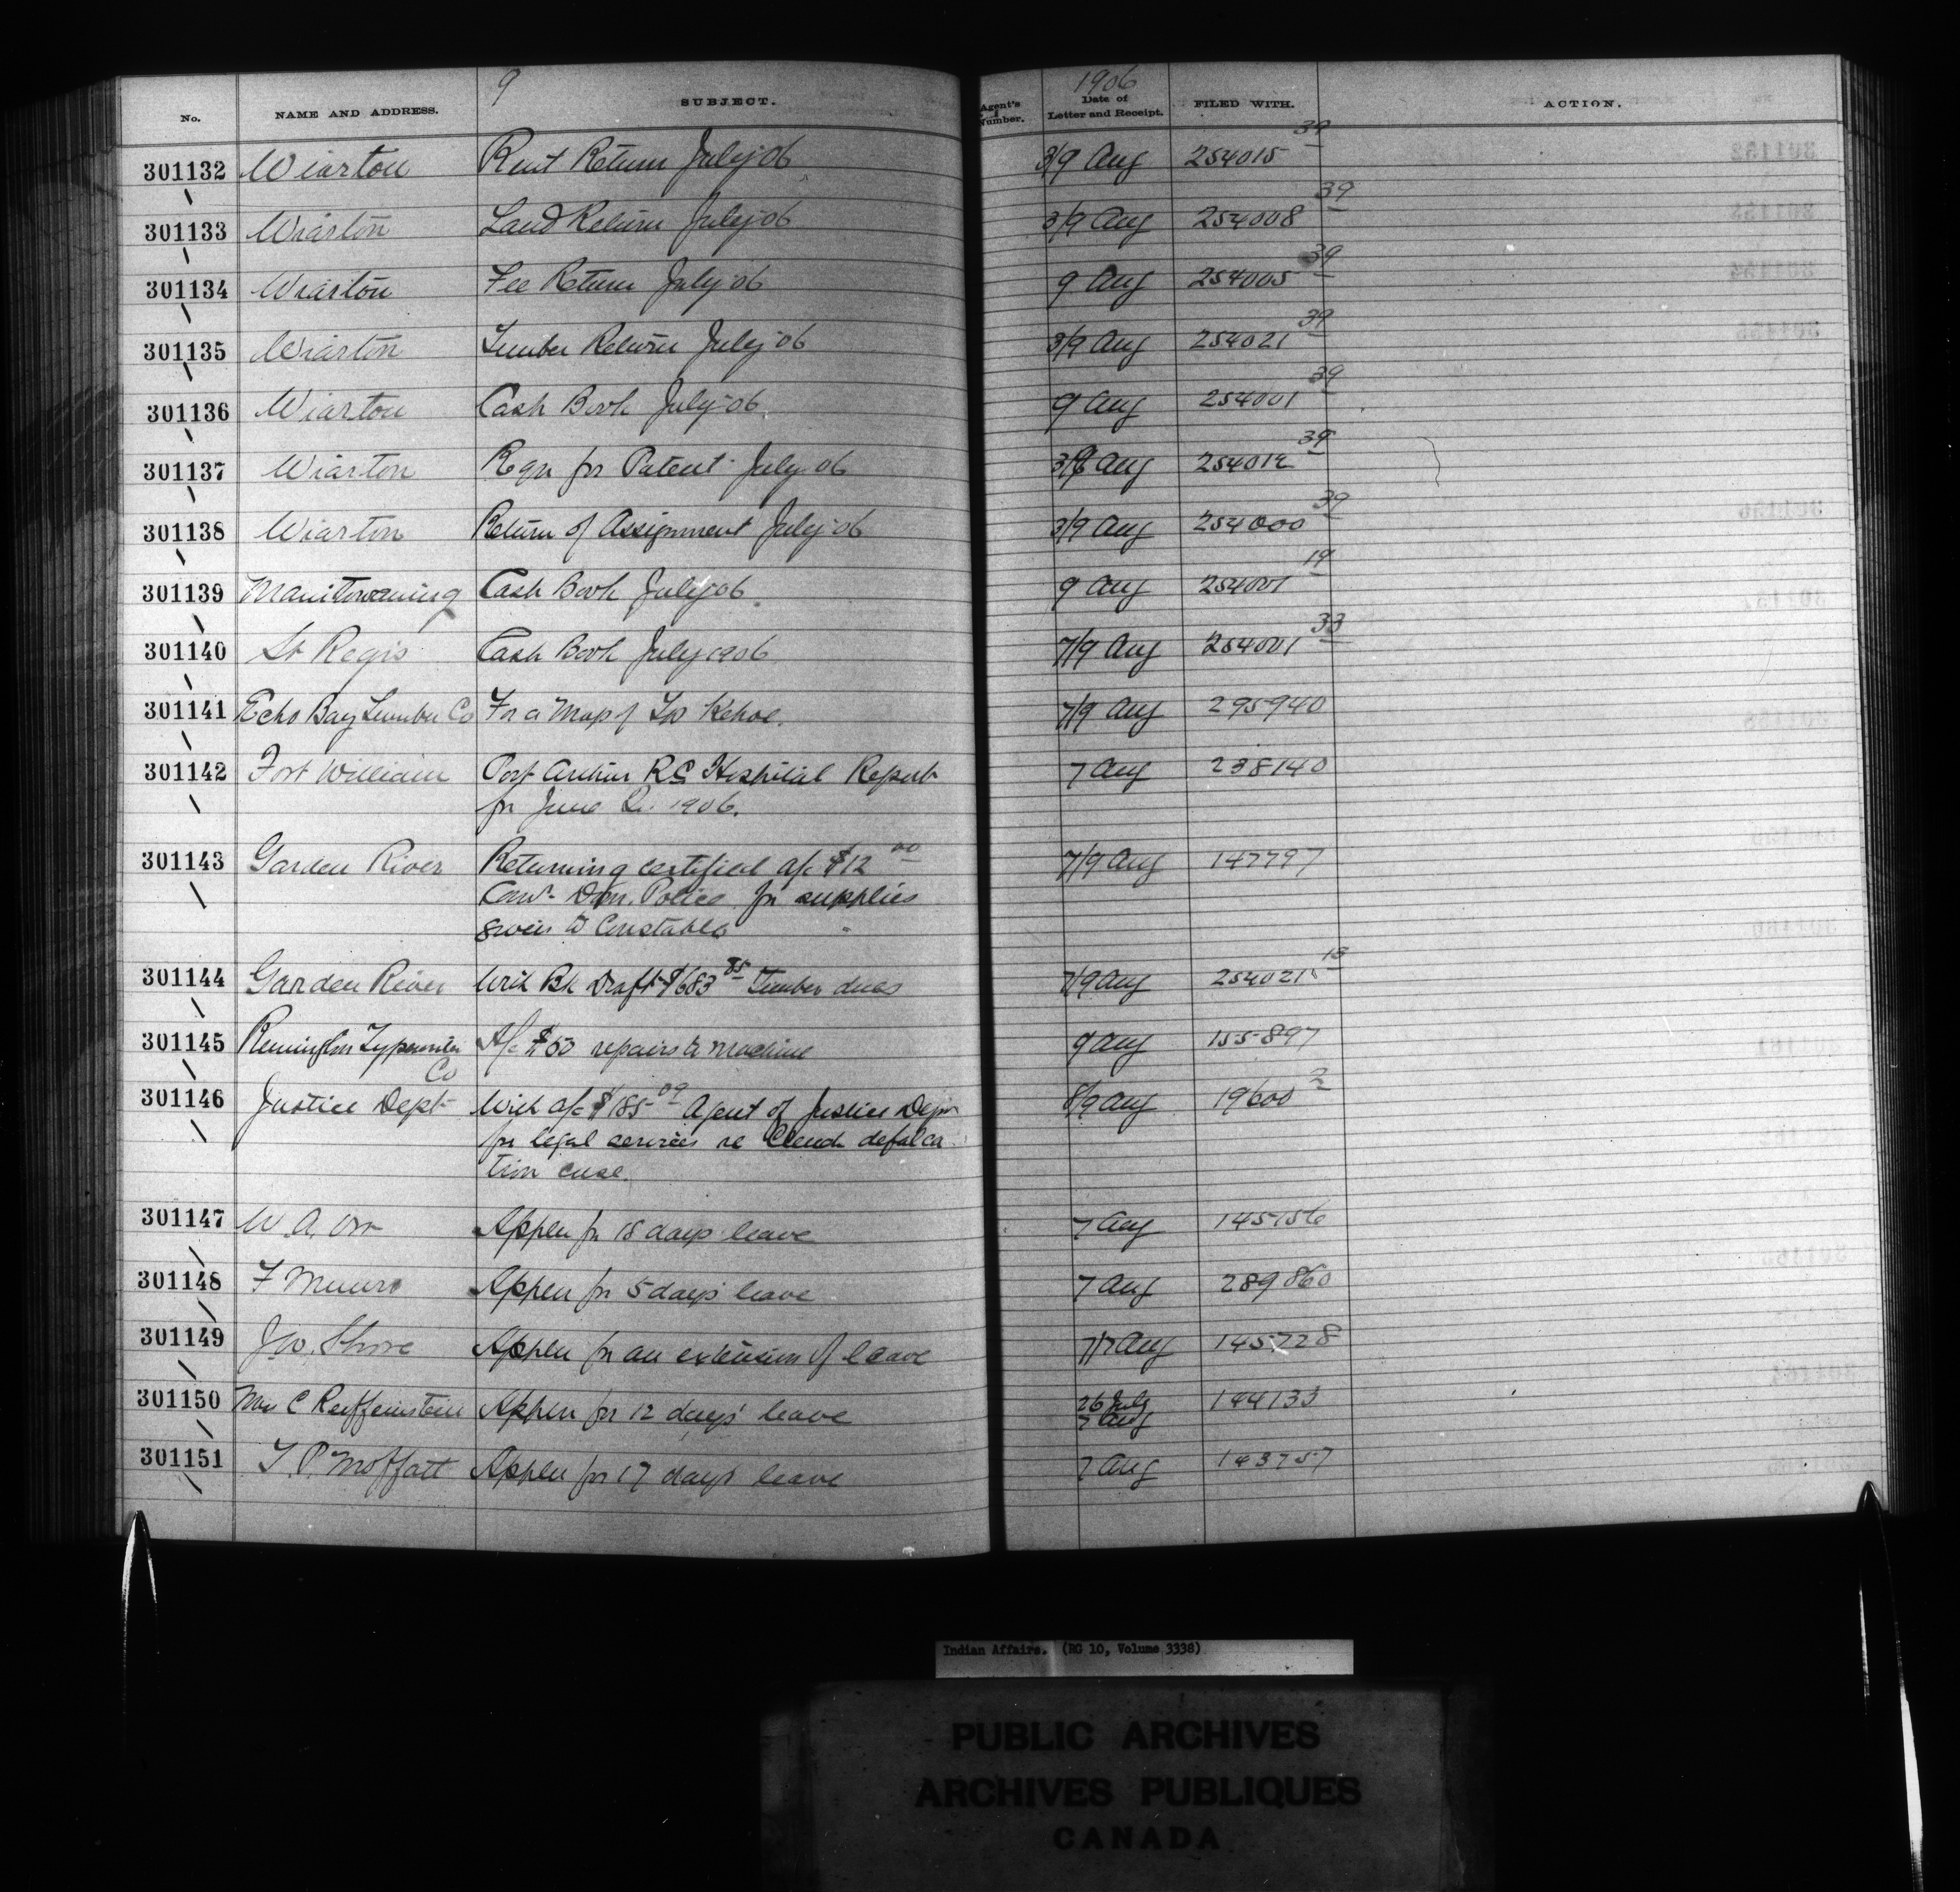 9 1906
No. NAME AND ADDRESS. SUBJECT. Agent's Number. Date of Letter and Receipt. FILED WITH. ACTION.
301132 Wiarton Rent Return July 06 3/9 Aug 254015 39
301133 Wiarton Land Return July 06 3/9 Aug 254008 39
301134 Wiarton Fee Return July 06 9 Aug 254005 39
301135 Wiarton Timber Return July 06 3/9 Aug 254021 39
301136 Wiarton Cash Book July 06 9 Aug 254001 39
301137 Wiarton Reqn for Patent July 06 3/9 Aug 254012 39
301138 Wiarton Return of Assignment July 06 3/9 Aug 254000 39
301139 Manitowaning Cash Book July 06 9 Aug 254001 19
301140 St Regis Cash Book July 1906 7/9 Aug 254001 33
301141 Echo Bay Lumber Co For a Map of Tp Kehoe. 7/9 Aug 295940
301142 Fort William Port Arthur RC Hospital Report 7 Aug 238140
for June Qr. 1906.
301143 Garden River Returning certified a/c $12 00 7/9 Aug 147797
Comr Dom. Police for supplies
given to Constables
301144 Garden River With Bk Draft $683 85 Timber dues 7/9 Aug 254021 13
301145 Remington Typewriter A/c $ 50 repairs to machine 9 Aug 155897
Co
301146 Justice Dept With a/c $185 09 Agent of Justice Dept 8/9 Aug 19600 2
for legal services re defalca
tion case.
301147 W. A. Orr Appln for 18 days leave 7 Aug 145156
301148 F Munro Appln for 5 days leave 7 Aug 289860
301149 Jno. Shore Appln for an extension of leave 7/7 Aug 145728
301150 Mrs C Reiffenstein Appln for 12 days' leave 26 July 144133
7 Aug
301151 T. P. Moffatt Appln for 17 days leave 7 Aug 143757
Indian Affairs. (RG 10, Volume 3338)
PUBLIC ARCHIVES
ARCHIVES PUBLIQUES
CANADA